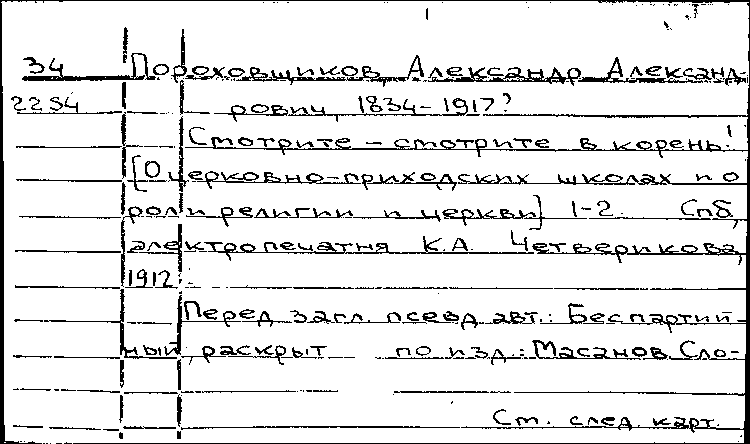 34 Пороховщиков, Александр Александ-
2234 рович, 1834-1917?
Смотрите - смотрите в корень!
[О церковно-приходских школах и о
роли религии и церкви] 1-2. Спб,
электропечатня К.А. Четверикова,
1912.
Перед загл. псевд авт.: Беспартий-
ный, раскрыт по изд.: Масанов. Сло-
См. след. карт.